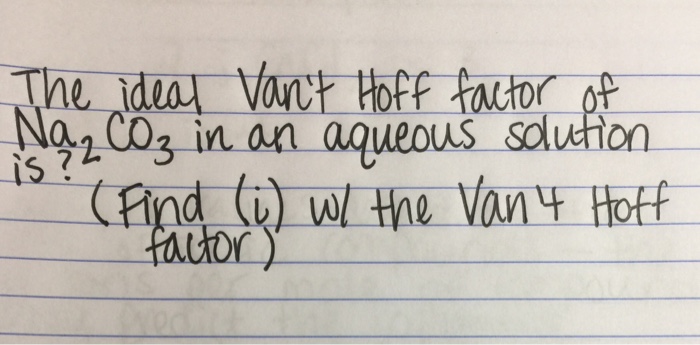 The ideal Van't Hoff factor of
Na₂CO₃ in an aqueous solution
is?
(Find (i) w/ the Van't Hoff
factor)